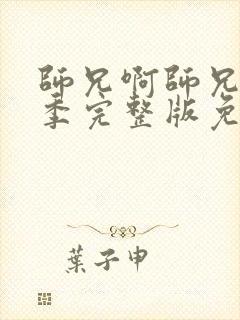 師兄啊師兄
季完整版免
葉子申